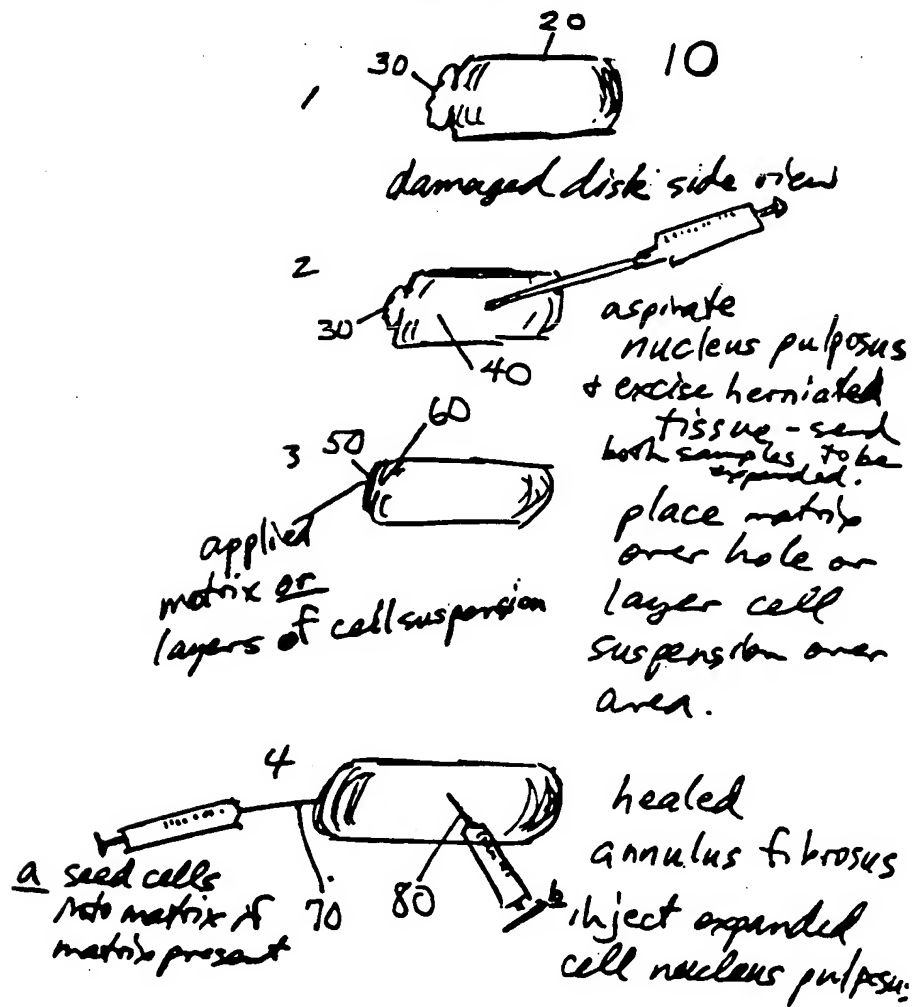 20
30
10
1
damaged disk side view
2
30
40
aspirate
nucleus pulposus
+ excise herniated
tissue - send
both samples to be
expanded.
3
50
60
applied
matrix or
layers of cell suspension
place matrix
over hole or
layer cell
suspension over
area.
4
healed
annulus fibrosus
a seed cells
into matrix if
matrix present
70
80
b
inject expanded
cell nucleus pulposus